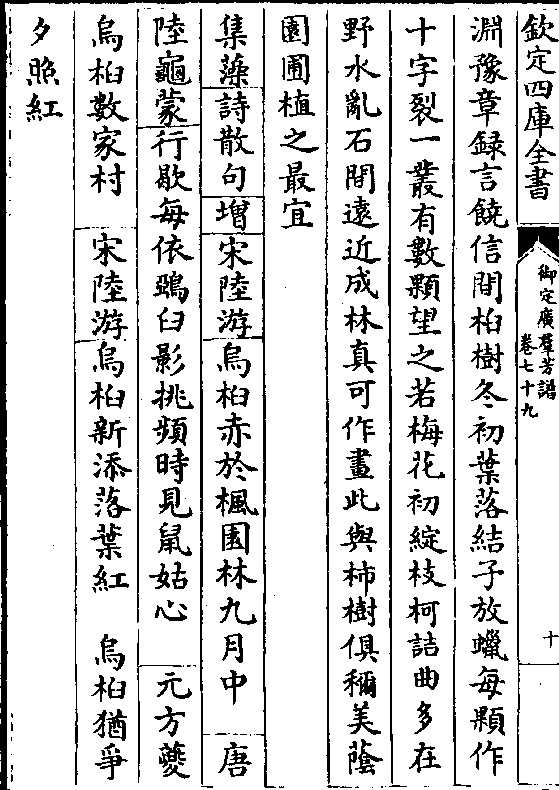 欽定四庫全書
御定廣羣芳譜
卷七十九
十
淵豫章録言饒信間桕樹冬初葉落結子放蠟每顆作
十字裂一叢有數顆望之若梅花初綻枝柯詰曲多在
野水亂石間遠近成林真可作畫此與柿樹俱稱美蔭
園圃植之最宜
集藻詩散句増宋陸游烏桕赤於楓園林九月中　唐
陸龜蒙行歇每依鵶臼影挑頻時見鼠姑心　元方夔
烏桕數家村　宋陸游烏桕新添落葉紅　烏桕猶爭
夕照紅